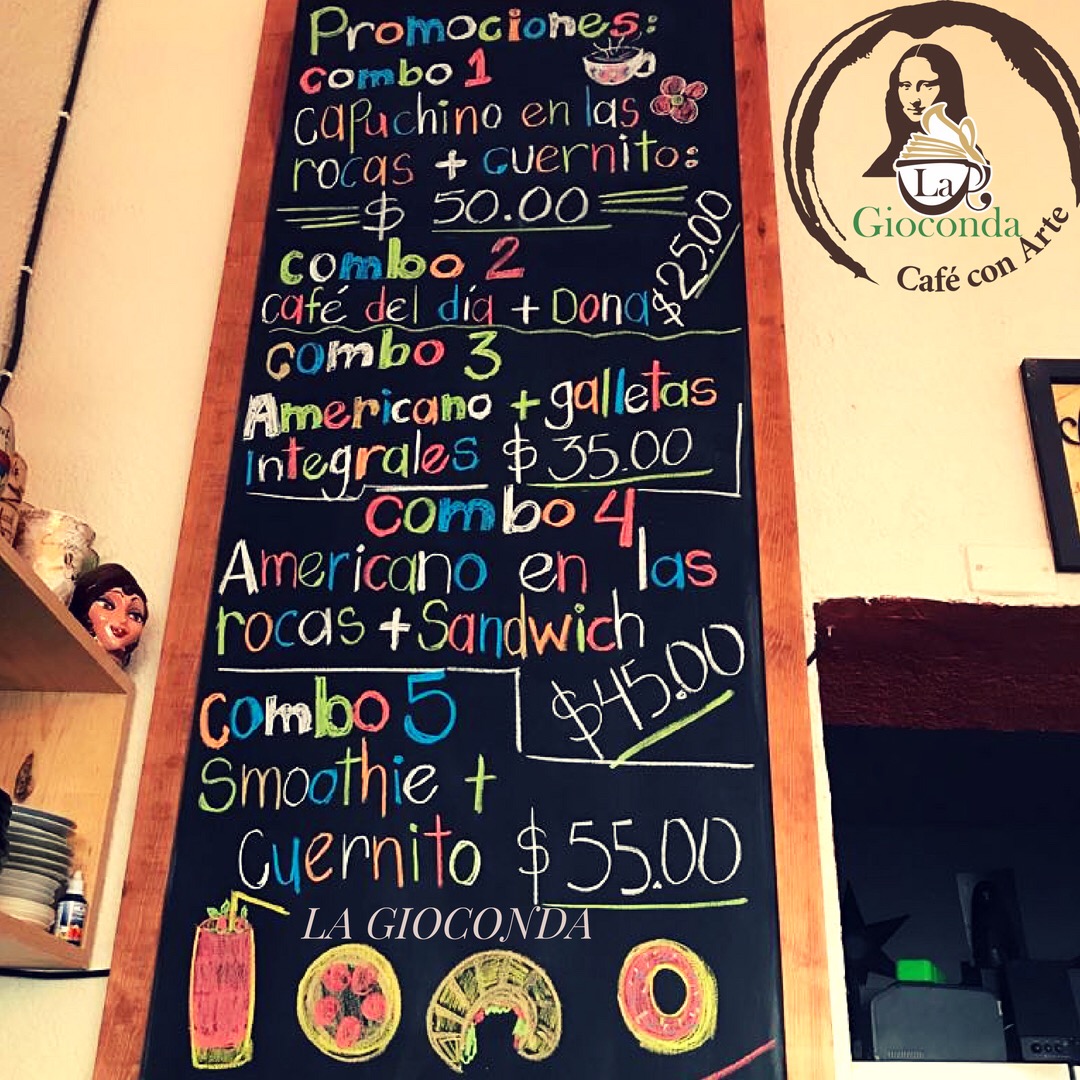 Promociones:
combo 1
capuchino en las
rocas + cuernito:
$ 50.00
combo 2
café del día + Dona $25.00
combo 3
Americano + galletas
integrales $35.00
combo 4
Americano en las
rocas + Sandwich
$45.00
combo 5
Smoothie +
Cuernito $55.00
LA GIOCONDA
La
Gioconda
Café con Arte